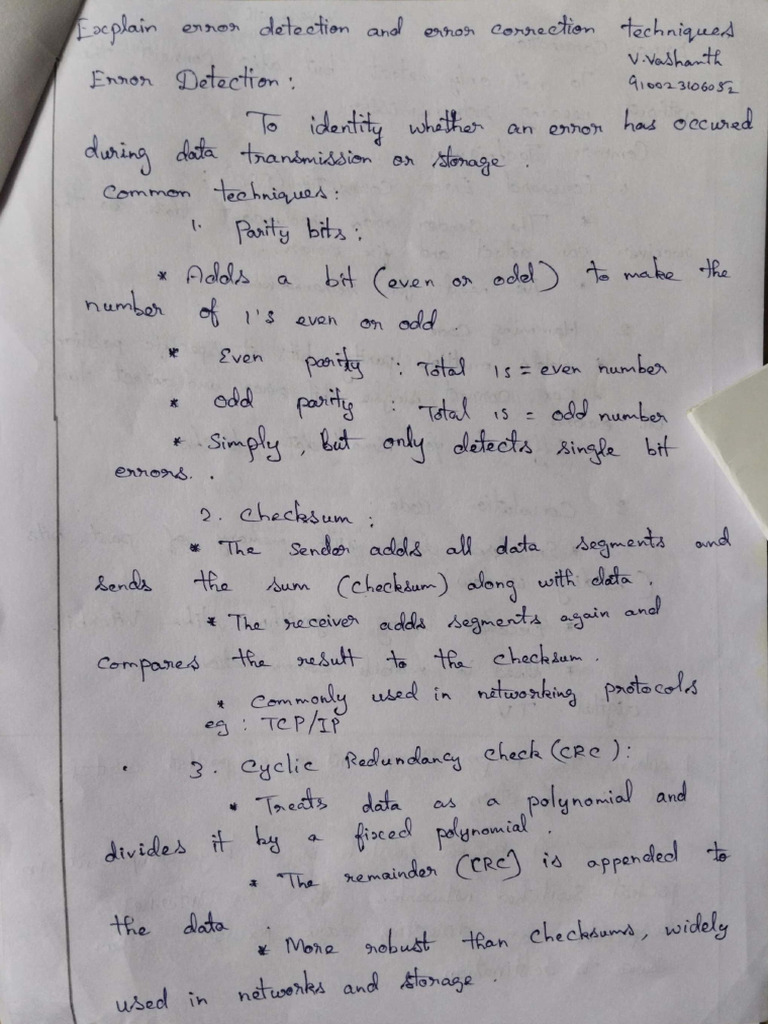 Explain error detection and error correction techniques
V.Vashanth
910023106052
Error Detection :
To identity whether an error has occured
during data transmission or storage .
Common techniques :
1. Parity bits :
* Adds a bit (even or odd) to make the
number of 1's even or odd .
* Even parity : Total 1s = even number
* odd parity : Total 1s = odd number
* Simply , But only detects single bit
errors. .
2. Checksum :
* The Sendor adds all data segments and
sends the sum (checksum) along with data .
* The receiver adds segments again and
compares the result to the checksum .
* Commonly used in networking protocols
eg : TCP/IP
3. Cyclic Redundancy Check (CRC) :
* Treats data as a polynomial and
divides it by a fixed polynomial .
* The remainder (CRC) is appended to
the data .
* More robust than checksums, widely
used in networks and storage .